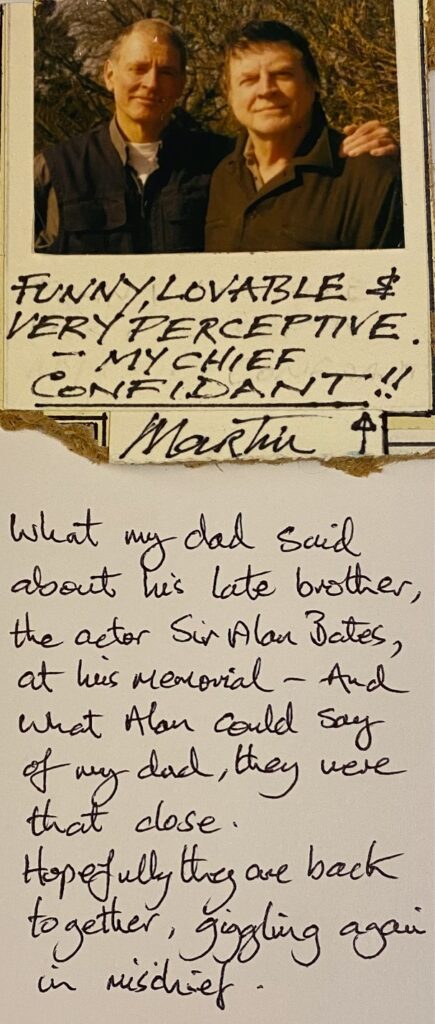 FUNNY, LOVABLE &
VERY PERCEPTIVE.
- MY CHIEF
CONFIDANT!!
Martin ↑
What my dad said
about his late brother,
the actor Sir Alan Bates,
at his memorial – And
what Alan could say
of my dad, they were
that close.
Hopefully they are back
together, giggling again
in mischief.